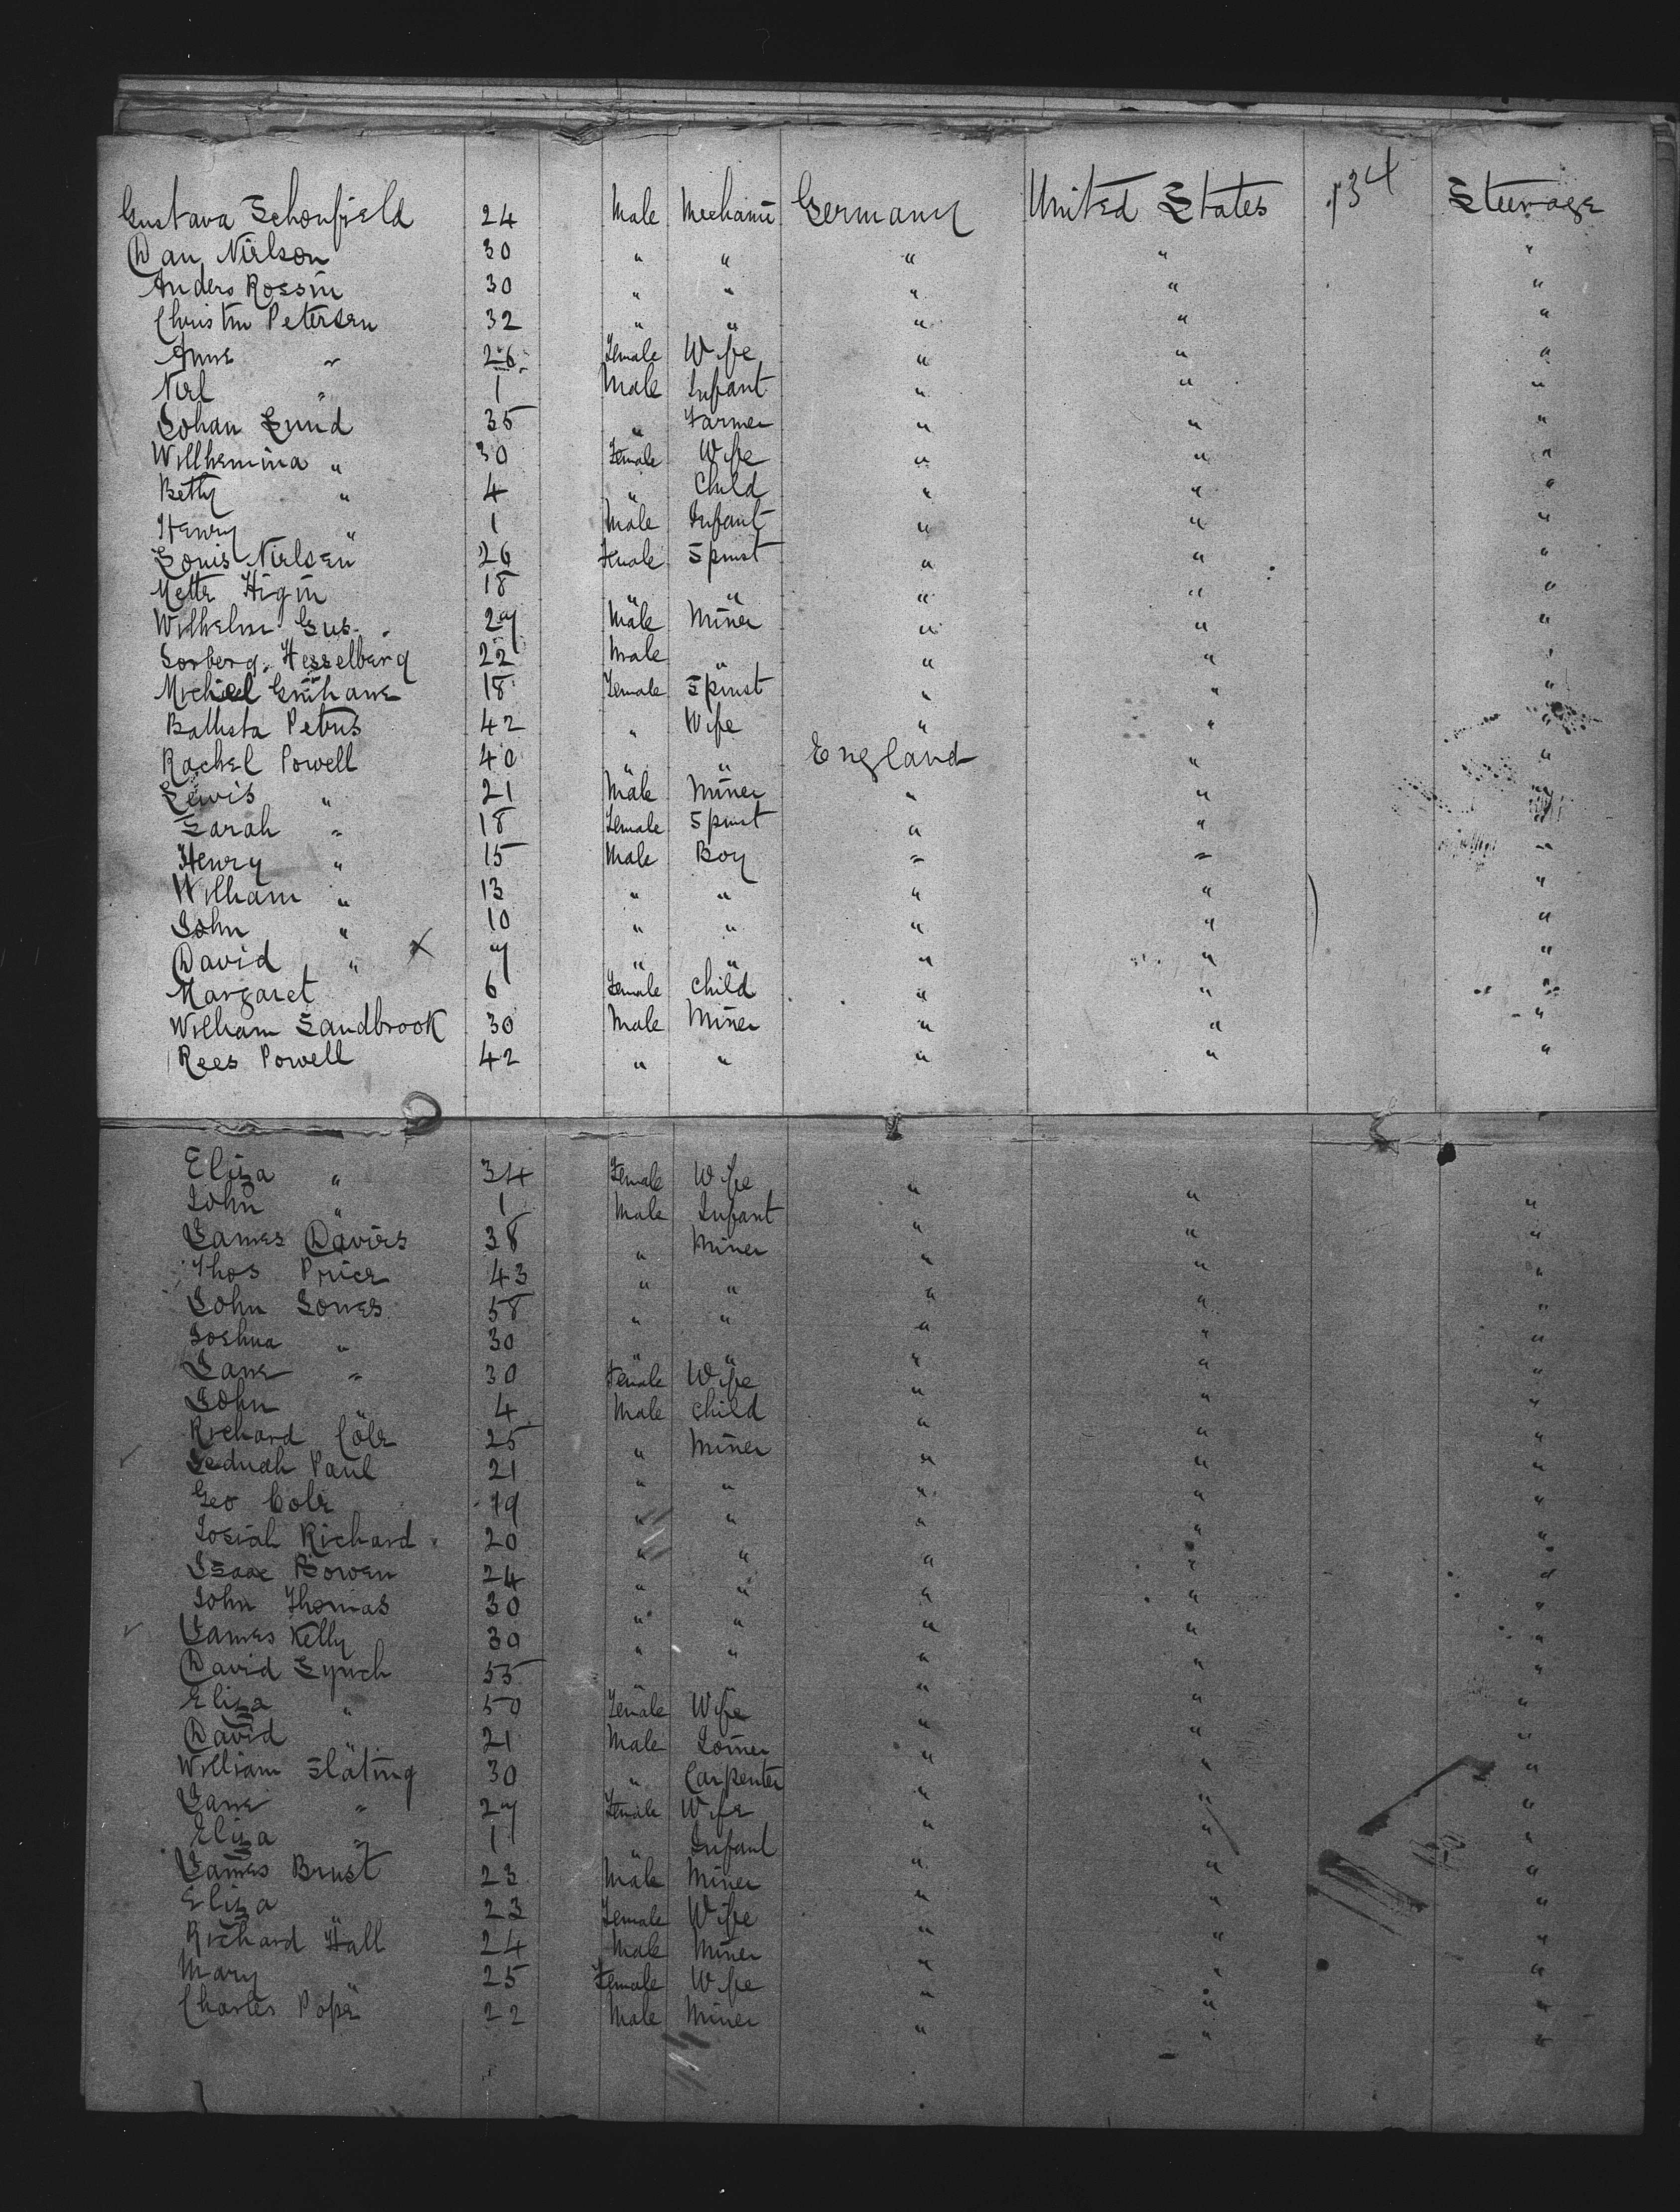 Gustava Schonfield 24 Male Mechanic Germany United States 134 Steerage
Dan Nielson 30 " " " " "
Anders Rossin 30 " " " " "
Christen Petersen 32 " " " " "
Anne " 26 Female Wife " " "
Niel " 1 Male Infant " " "
Johan Lund 35 " Farmer " " "
Willhemina " 30 Female Wife " " "
Betty " 4 " Child " " "
Henry " 1 Male Infant " " "
Louis Nielsen 26 Female Spinst " " "
Mette Higin 18 " " " " "
Wilhelm Gus 27 Male Miner " " "
Sorberg. Hesselberg 22 Male " " " "
Michiel 18 Female Spinst " " "
Battista Petrus 42 " Wife " " "
Rachel Powell 40 " " England " "
Lewis " 21 Male Miner " " "
Sarah " 18 Female Spinst " " "
Henry " 15 Male Boy " " "
William " 13 " " " " "
John " 10 " " " " "
David " x 7 " " " " "
Margaret 6 Female Child " " "
William Sandbrook 30 Male Miner " " "
Rees Powell 42 " " " " "
Eliza " 34 Female Wife " "
John " 1 Male Infant " " "
James Davies 38 " Miner " " "
Thos Price 43 " " " " "
John Jones 58 " " " " "
Joshua " 30 " " " " "
Jane " 30 Female Wife " " "
John " 4 Male Child " " "
Richard Cole 25 " Miner " " "
Jeduah Paul 21 " " " " "
Geo Cole 19 " " " " "
Josiah Richard 20 " " " " "
Isaac Bowen 24 " " " " "
John Thomas 30 " " " " "
James Kelly 30 " " " " "
David Lynch 55 " " "
Eliza " 50 Female Wife " " "
David " 21 Male Joiner " " "
William Slating 30 " Carpenter " " "
Jane " 27 Female Wife " " "
Eliza " 1 " Infant " " "
James Brust 23 Male Miner " " "
Eliza " 23 Female Wife " " "
Richard Hall 24 Male Miner " " "
Mary " 25 Female Wife " " "
Charles Pope 22 Male Miner " " "